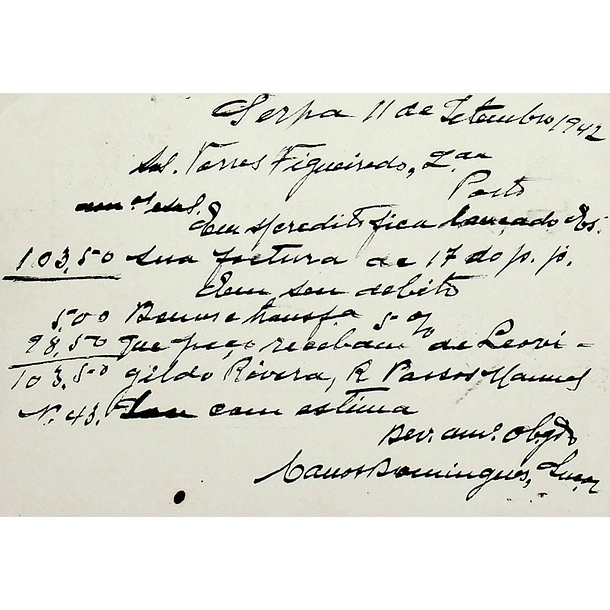 Serpa 11 de Setembro 1942
Snrs. Torres Figueiredo, Lda
Porto
Em s/credito fica lançado Es.
103,50 sua factura de 17 do p. p.
Em seu debito
5,00 Bonus e 5 %
98,50 que peço recebam de Leovi-
103,50 gildo Rovera, R. Passos Manuel
Nº 43. com estima
Ven. amº. Obgdo
Domingues,